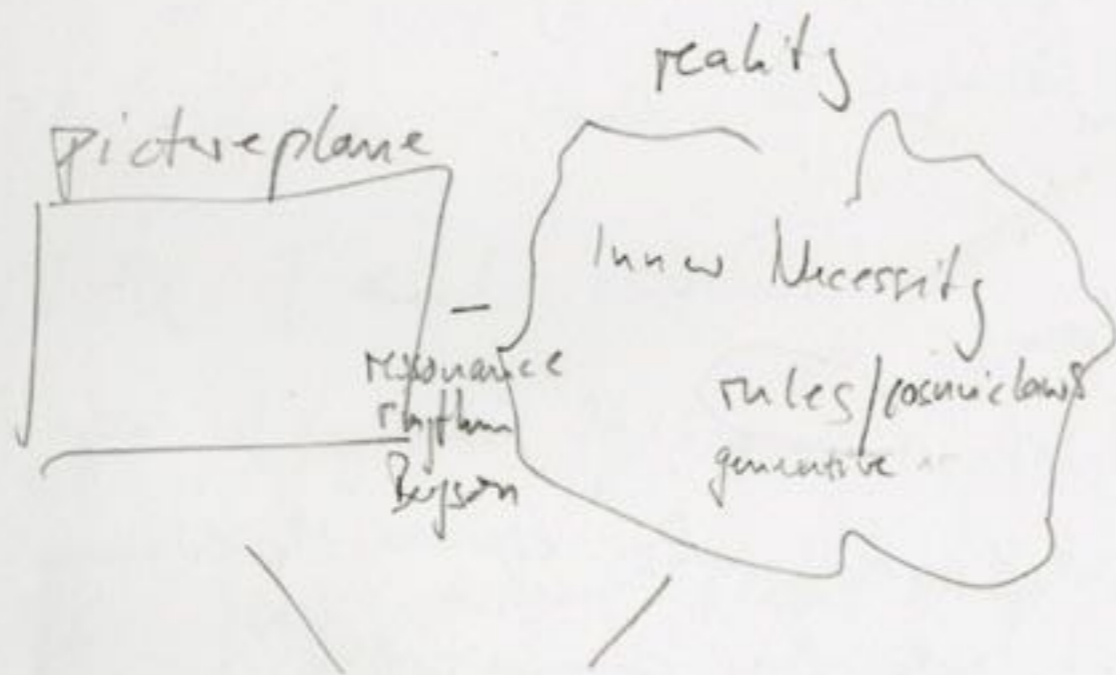 reality
pictureplane
Inner Necessity
ressonance
rhythm
Bergson
rules/cosmic laws
generative